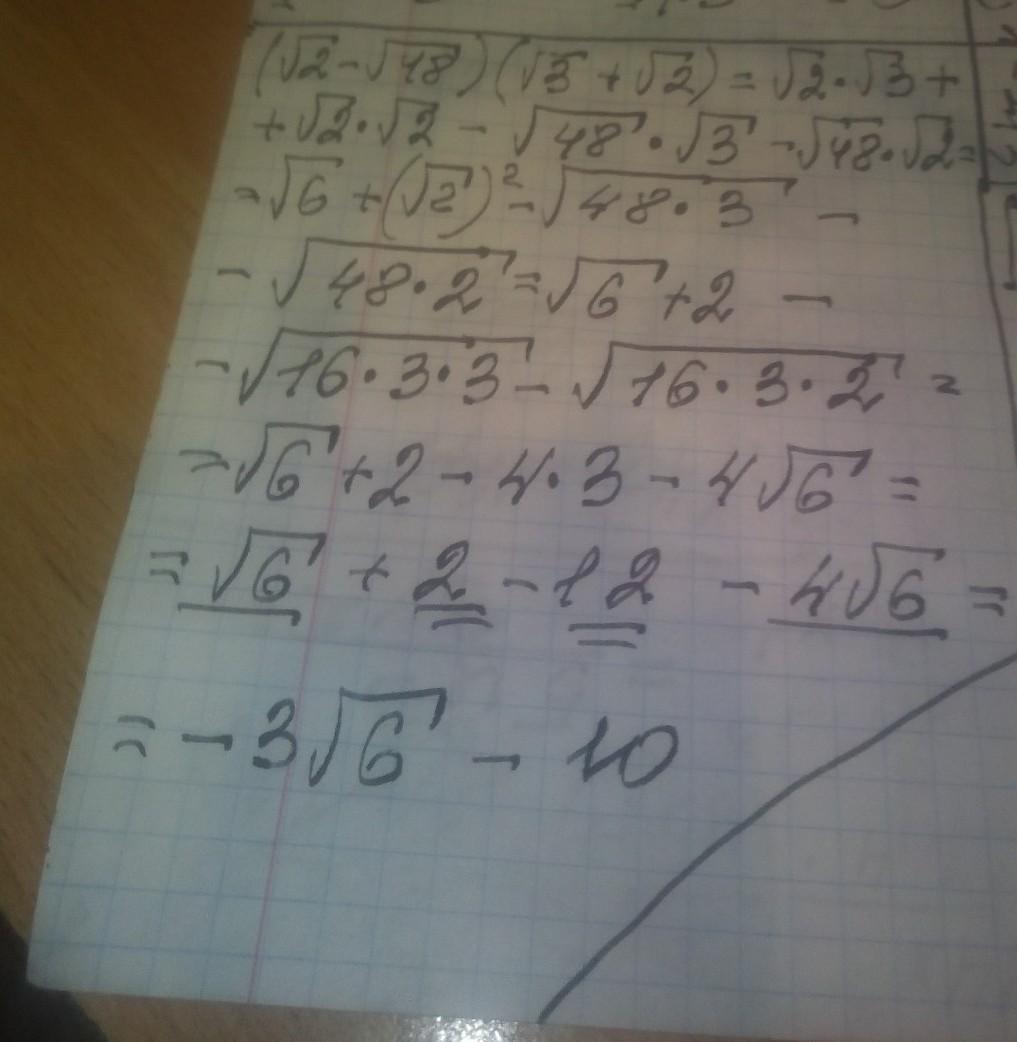 (√2-√48)(√3+√2)=√2·√3+
+√2·√2-√48·√3-√48·√2=
=√6+(√2)²-√48·3-
-√48·2=√6+2-
-√16·3·3-√16·3·2=
=√6+2-4·3-4√6=
=√6+2-12-4√6=
=-3√6-10